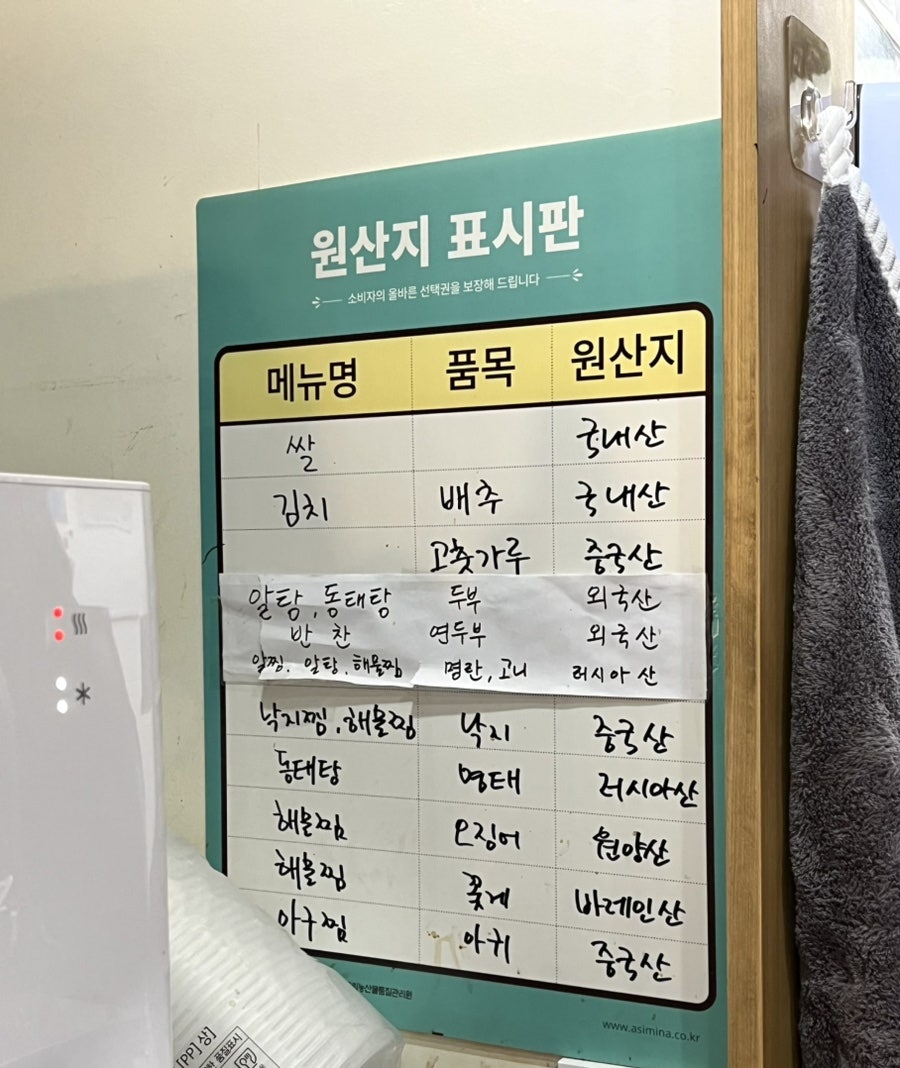 원산지 표시판
소비자의 올바른 선택권을 보장해 드립니다
메뉴명 품목 원산지
쌀 국내산
김치 배추 국내산
고춧가루 중국산
알탕, 동태탕 두부 외국산
반찬 연두부 외국산
알찜. 알탕. 해물찜 명란, 고니 러시아산
낙지찜, 해물찜 낙지 중국산
동태탕 명태 러시아산
해물찜 오징어 원양산
해물찜 꽃게 바레인산
아구찜 아귀 중국산
농산물품질관리원
www.asimina.co.kr
[PP] 상]
품질표시